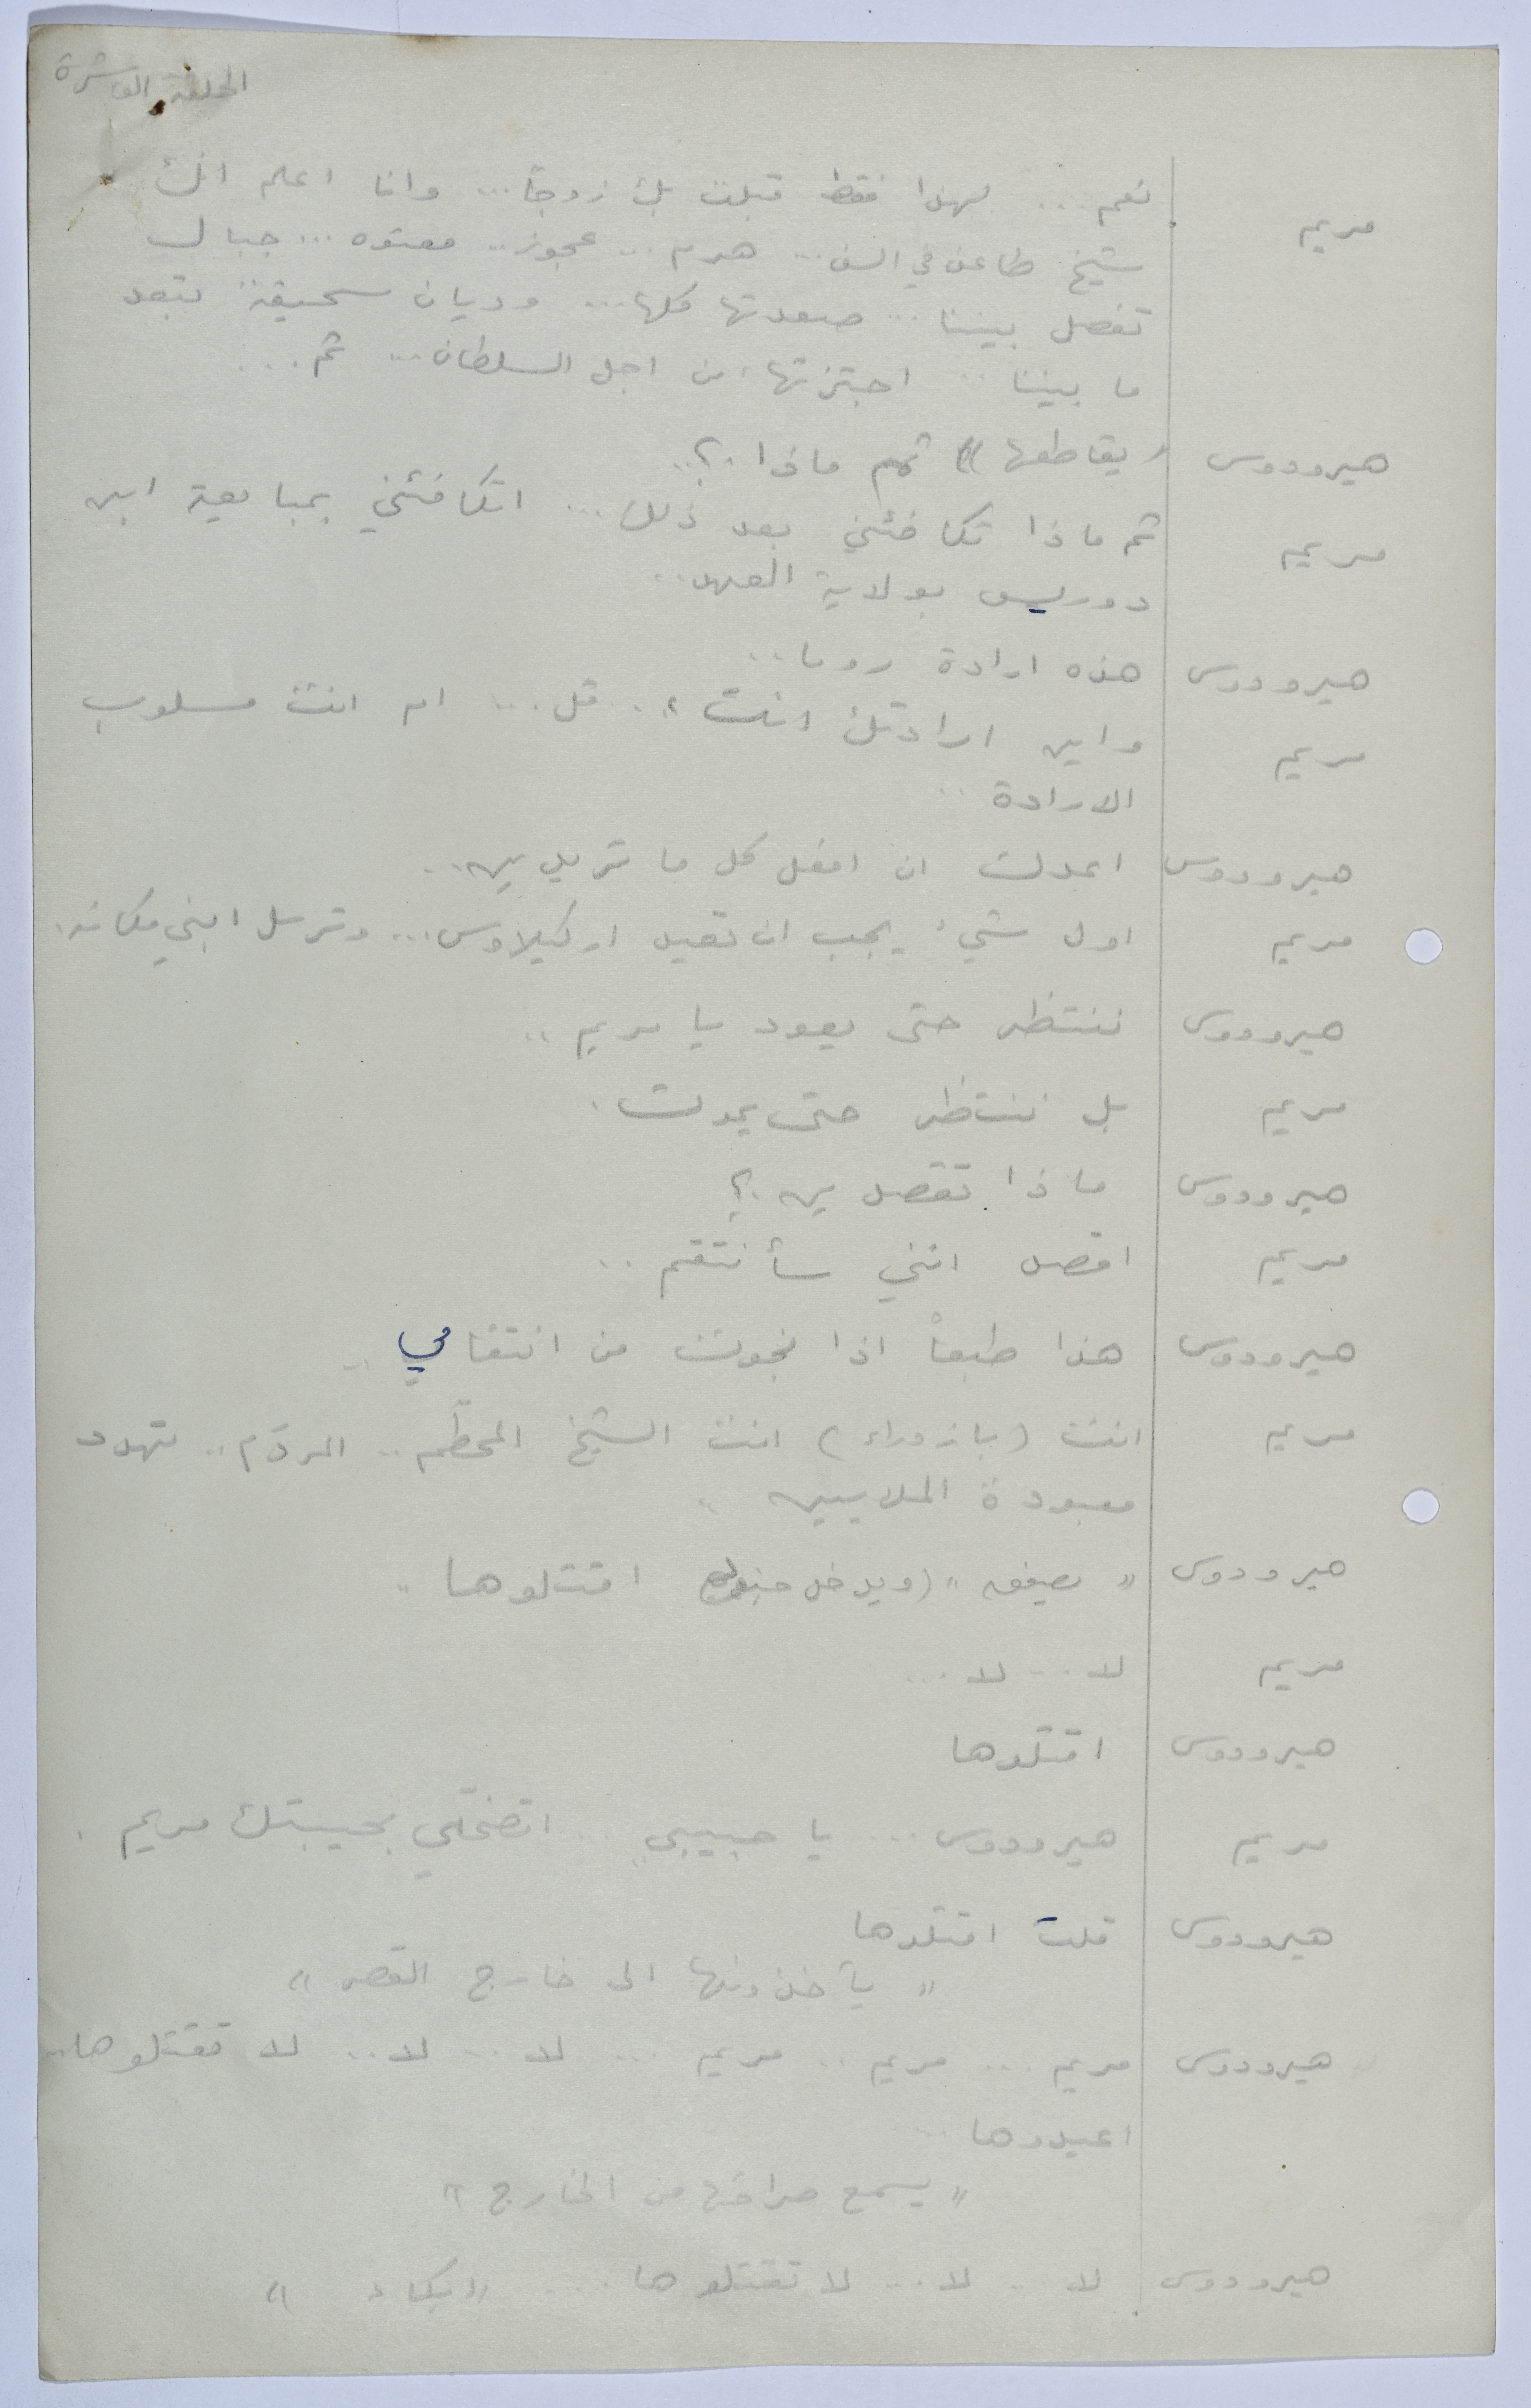 الحلقة العاشرة
مريم نعم ... لهذا فقط قبلت بك زوجاً ... وانا اعلم انك
شيخ طاعن في السن ... هرم ... عجوز .. معتوه ... جبال
تفصل بيننا ... صعدتها كلها ... وديان سحيقة تبعد
ما بيننا .. اجتزتها من اجل السلطان ... ثم ...
هيرودوس (يقاطعها) ثم ماذا ..؟
مريم ثم ماذا تكافئني بعد ذلك ... اتكافئني بمبايعة ابن
دوريس بولاية العهد ..
هيرودوس هذه ارادة روما ..
مريم واين ارادتك انت ؟ .. قل ... ام انت مسلوب
الارادة ..
هيرودوس اعدك ان افعل كل ما تريدين ..
مريم اول شيء يجب ان تقيل اركيلاوس ... وترسل ابني مكانه .
هيرودوس ننتظر حتى يعود يا مريم ..
مريم بل ننتظر حتى يموت .
هيرودوس ماذا تقصدين ؟
مريم اقصد انني سأنتقم ..
هيرودوس هذا طبعاً اذا نجوت من انتقامي ..
مريم انت (بازدراء) انت الشيخ المحطّم .. الهرم .. تهدد
معبودة الملايين ..
هيرودوس " يصفق " (ويدخل جنود) اقتلوها ..
مريم لا ... لا ...
هيرودوس اقتلوها
مريم هيرودوس ... يا حبيبي ... اتضحّي بحبيبتك مريم .
هيرودوس قلت اقتلوها
" يأخذونها الى خارج القصر "
هيرودوس مريم ... مريم .. مريم ... لا ... لا .. لا تقتلوها ..
اعيدوها ..
" يسمع صراخها من الخارج "
هيرودوس لا ... لا ... لا تقتلوها ... " بكاء "